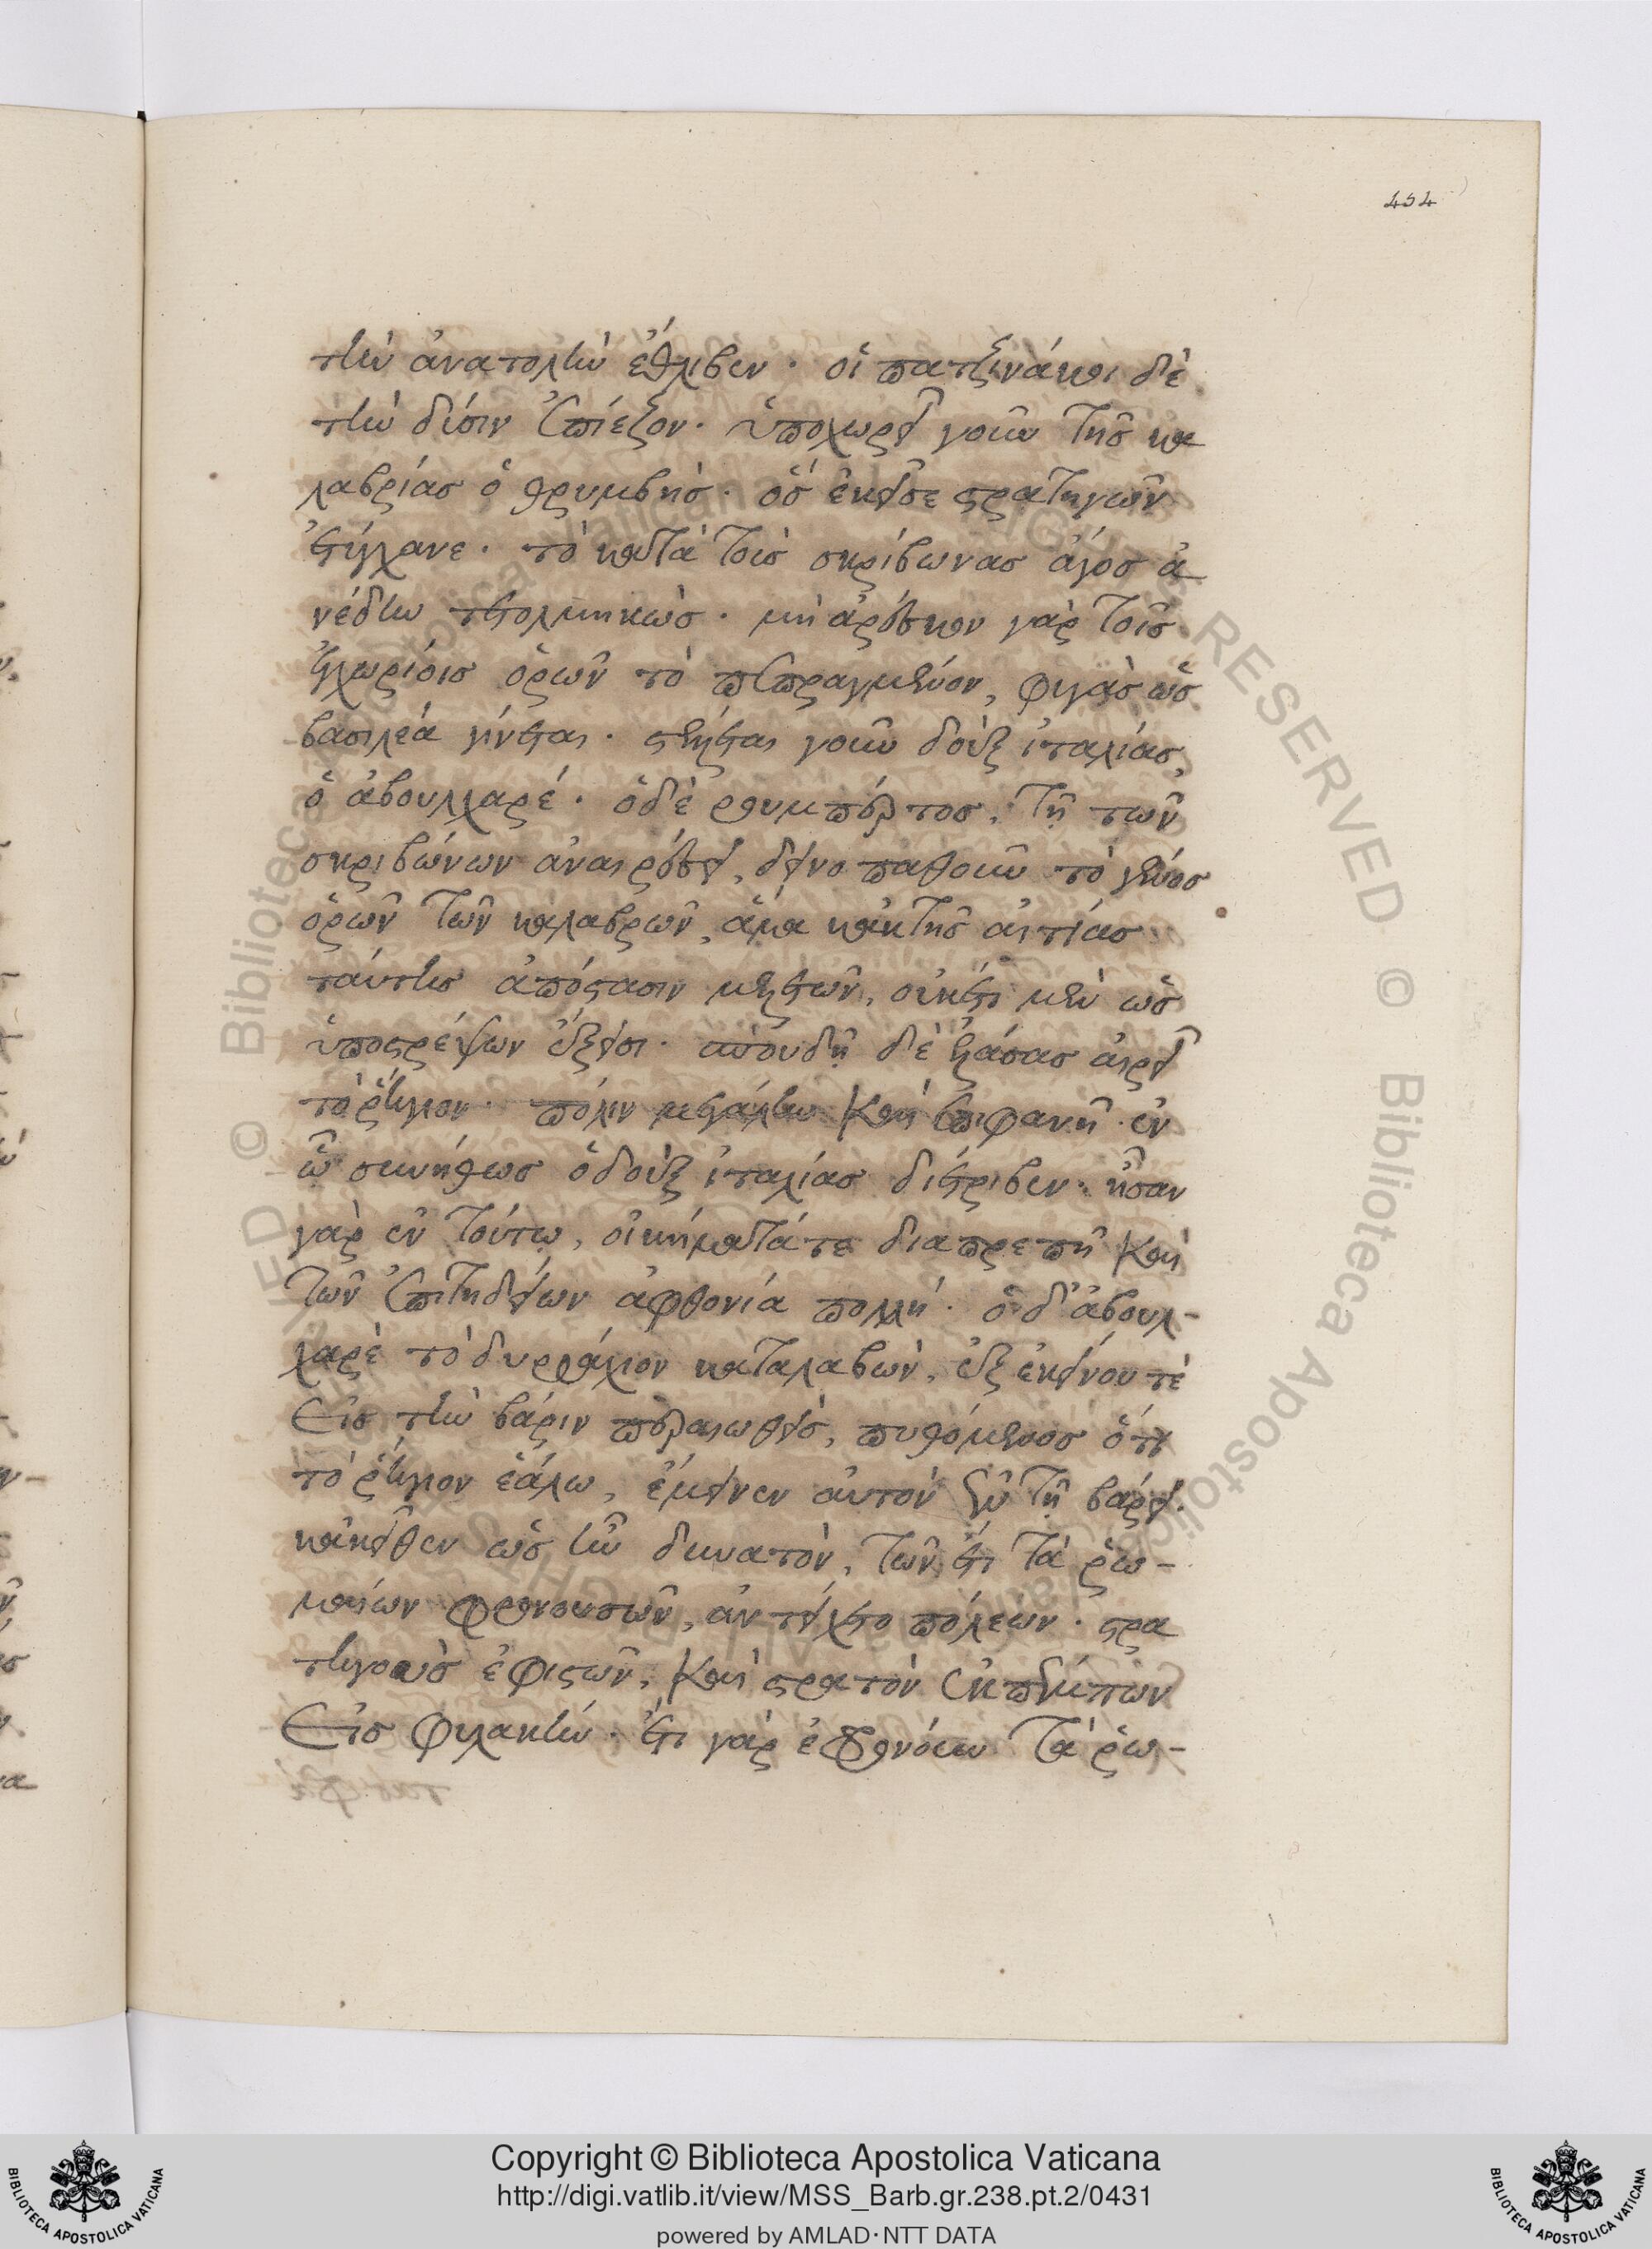 454
τὴν ἀνατολὴν ἔθλιβεν· οἱ πατζινάκοι δὲ
τὴν δύσιν ἐπίεζον. ὑποχωρεῖ γοῦν τῆς κα
λαβρίας ὁ θρυμβὴς· ὃς ἐκεῖσε στρατηγῶν
ἐτύγχανε· τὸ κατὰ τοὺς σκρίβωνας ἄγος ἀ
νέδην τετολμηκὼς· μὴ ἀρέσκον γὰρ τοῖς
ἐγχωρίοις ὁρῶν τὸ πεπραγμένον, φυγὰς ὡς
βασιλέα γίνεται· στέλλεται γοῦν δοὺξ ἰταλίας,
ὁ ἀβουλλαρέ· ὁ δὲ ρουμπέρτος, τῇ τῶν
σκριβώνων ἀναιρέσει, δεινοπαθοῦν τὸ γένος
ὁρῶν τῶν καλαβρῶν, ἅμα κἀκ τῆς αἰτίας
ταύτης ἀπόστασιν μελετῶν, οὐκέτι μὲν ὡς
ὑποστρέψων ἔξεισι· σπουδῇ δὲ ἐλάσας αἱρεῖ
τὸ ῥήγιον· πόλιν μεγάλην καὶ ἐπιφανῆ· ἐν
ᾧ συνήθως ὁ δοὺξ ἰταλίας διέτριβεν· ἦσαν
γὰρ ἐν τούτῳ, οἰκήματά τε διαπρεπῆ καὶ
τῶν ἐπιτηδείων ἀφθονία πολλή· ὁ δ' ἀβουλ-
λαρὲ τὸ δυρράχιον καταλαβὼν, ἐξ ἐκείνου τὲ
εἰς τὴν βάριν περαιωθεὶς, πυθόμενος ὅτι
τὸ ῥήγιον ἑάλω, ἔμεινεν αὐτοῦ ἐν τῇ βάρει.
κἀκεῖθεν ὡς ἦν δυνατὸν, τῶν ἔτι τὰ ῥω-
μαίων φρονουσῶν, ἀντείχετο πόλεων· στρα
τηγοὺς ἐφιστῶν, καὶ στρατὸν ἐκπέμπων
εἰς φυλακήν· ἔτι γὰρ ἐφρόνουν τὰ ῥω-